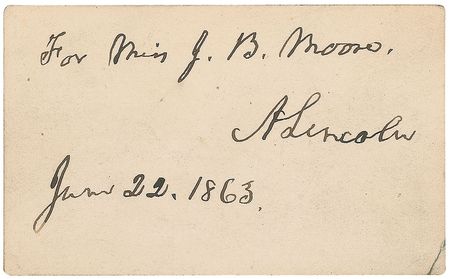 For Miss J. B. Moore.
A Lincoln
June 22. 1863.